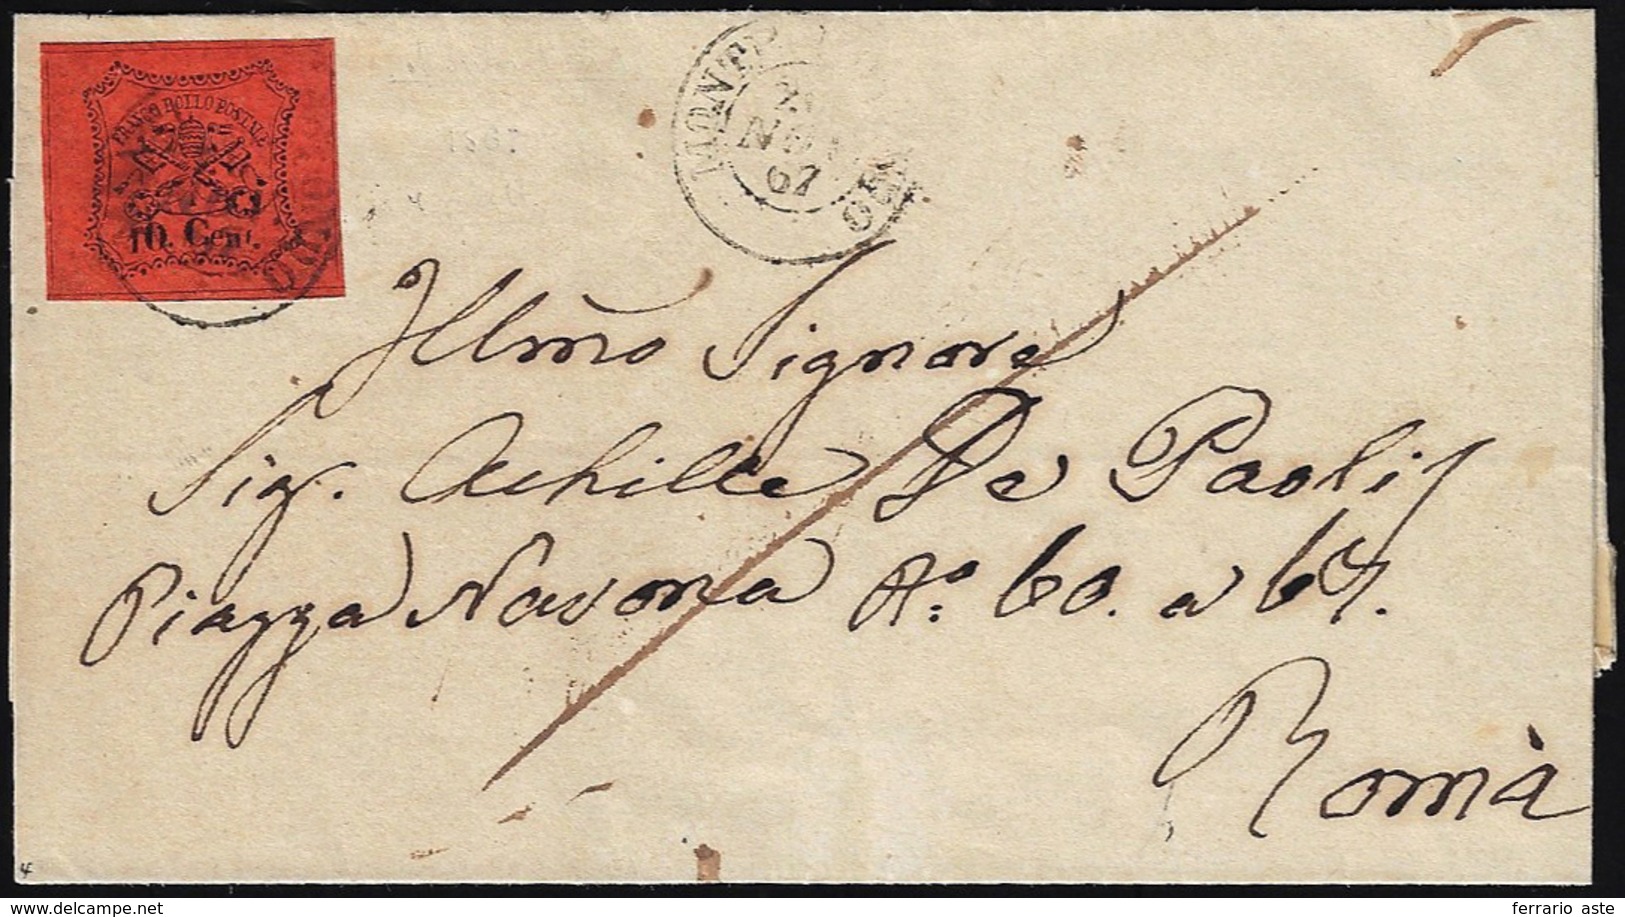 FRANCO BOLLO POSTALE
10. Cent.
NOV
67
Illmo Signore
Sig. Achille De Paolis
Piazza Navona No. 60. a 67.
Roma
4
delcampe.net
ferrario aste